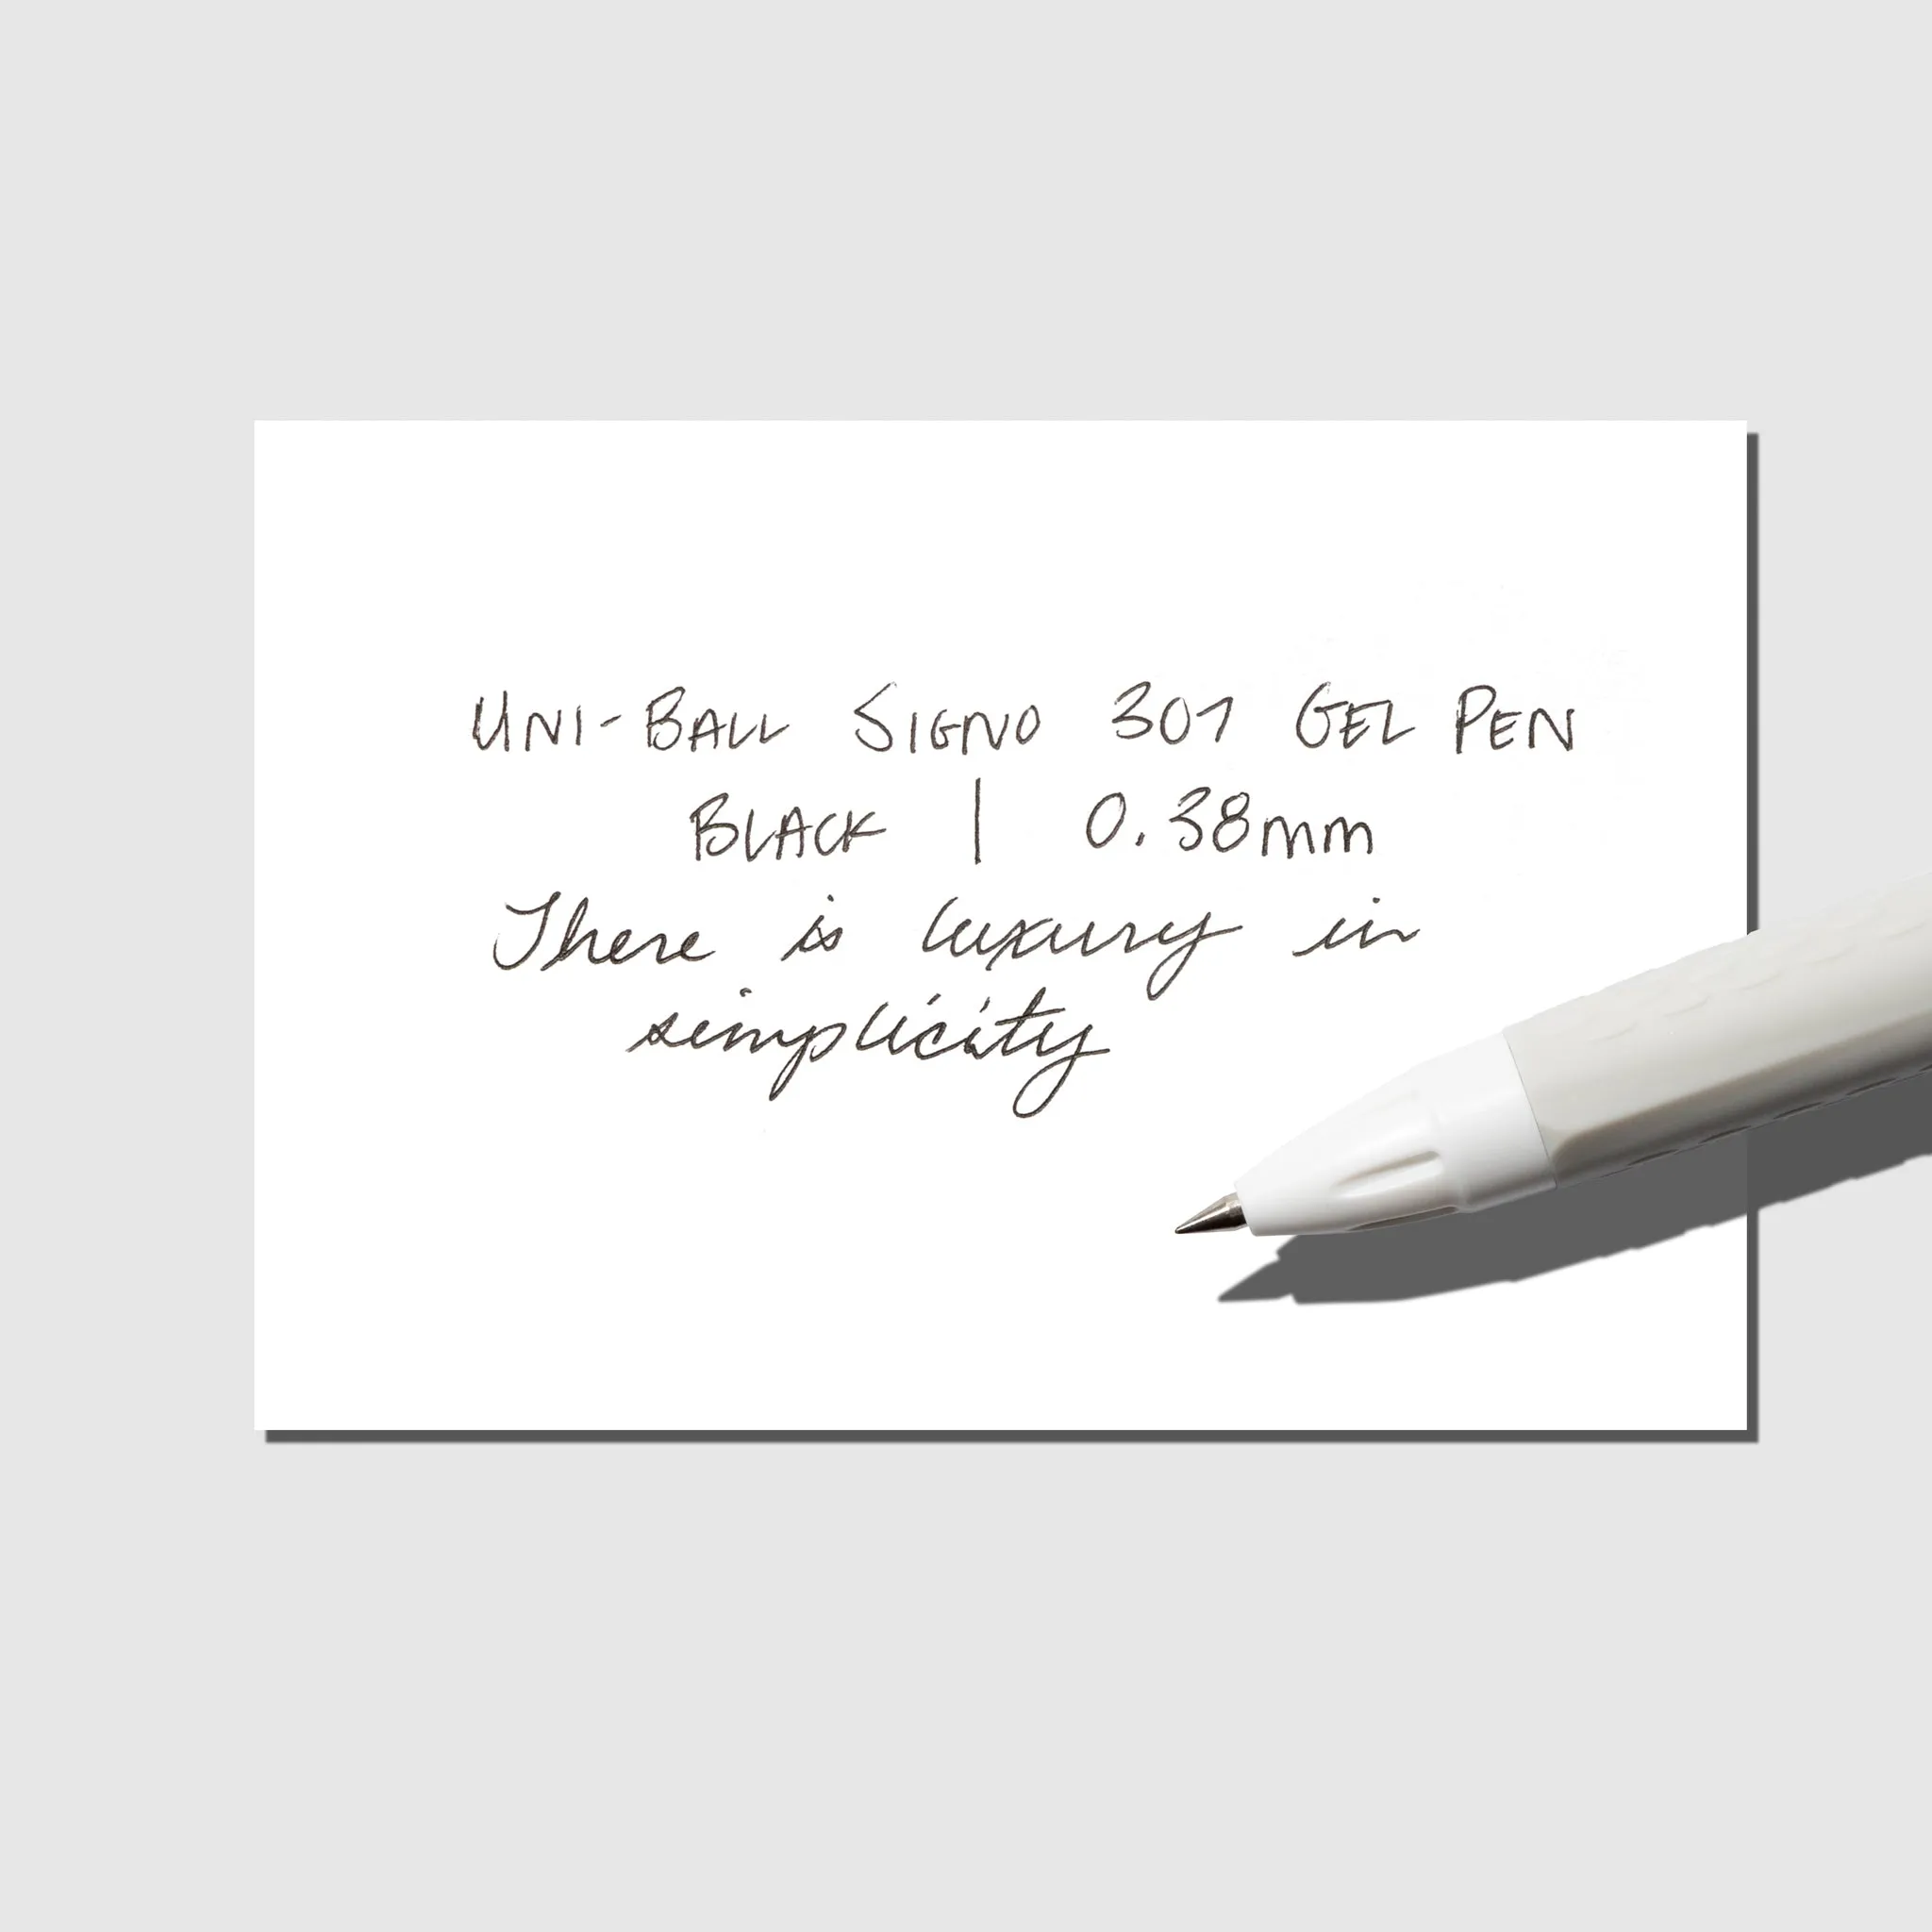 UNI-BALL SIGNO 307 GEL PEN
BLACK | 0.38mm
There is luxury in
simplicity